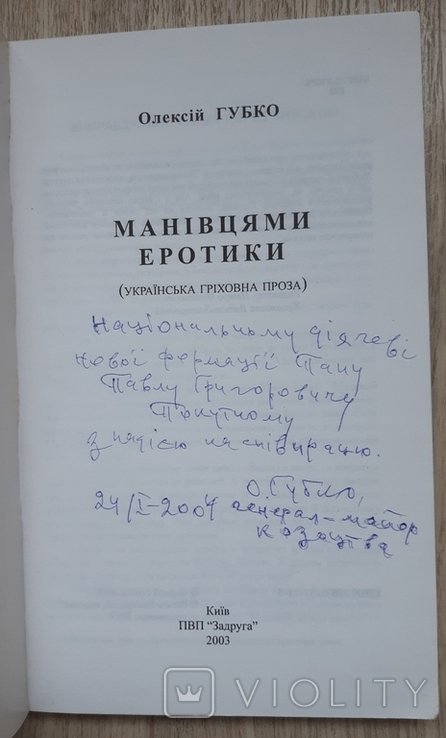 Олексій ГУБКО
МАНІВЦЯМИ
ЕРОТИКИ
(УКРАЇНСЬКА ГРІХОВНА ПРОЗА)
Національному діячеві
нової формації Пану
Павлу Григоровичу
з надією на співпрацю.
О. Губко,
24/I-2004 генерал-майор
козацтва
Київ
ПВП "Задруга"
2003
VIOLITY